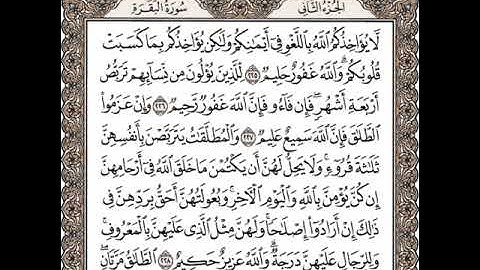 الجزء الثاني
سورة البقرة
لَّا يُؤَاخِذُكُمُ ٱللَّهُ بِٱللَّغْوِ فِىٓ أَيْمَـٰنِكُمْ وَلَـٰكِن يُؤَاخِذُكُم بِمَا كَسَبَتْ
قُلُوبُكُمْ ۗ وَٱللَّهُ غَفُورٌ حَلِيمٌ ٢٢٥ لِّلَّذِينَ يُؤْلُونَ مِن نِّسَآئِهِمْ تَرَبُّصُ
أَرْبَعَةِ أَشْهُرٍ ۖ فَإِن فَآءُو فَإِنَّ ٱللَّهَ غَفُورٌ رَّحِيمٌ ٢٢٦ وَإِنْ عَزَمُوا۟
ٱلطَّلَـٰقَ فَإِنَّ ٱللَّهَ سَمِيعٌ عَلِيمٌ ٢٢٧ وَٱلْمُطَلَّقَـٰتُ يَتَرَبَّصْنَ بِأَنفُسِهِنَّ
ثَلَـٰثَةَ قُرُوٓءٍ ۚ وَلَا يَحِلُّ لَهُنَّ أَن يَكْتُمْنَ مَا خَلَقَ ٱللَّهُ فِىٓ أَرْحَامِهِنَّ
إِن كُنَّ يُؤْمِنَّ بِٱللَّهِ وَٱلْيَوْمِ ٱلْـَٔاخِرِ ۚ وَبُعُولَتُهُنَّ أَحَقُّ بِرَدِّهِنَّ فِى
ذَٰلِكَ إِنْ أَرَادُوٓا۟ إِصْلَـٰحًا ۚ وَلَهُنَّ مِثْلُ ٱلَّذِى عَلَيْهِنَّ بِٱلْمَعْرُوفِ ۚ
وَلِلرِّجَالِ عَلَيْهِنَّ دَرَجَةٌ ۗ وَٱللَّهُ عَزِيزٌ حَكِيمٌ ٢٢٨ ٱلطَّلَـٰقُ مَرَّتَانِ ۖ